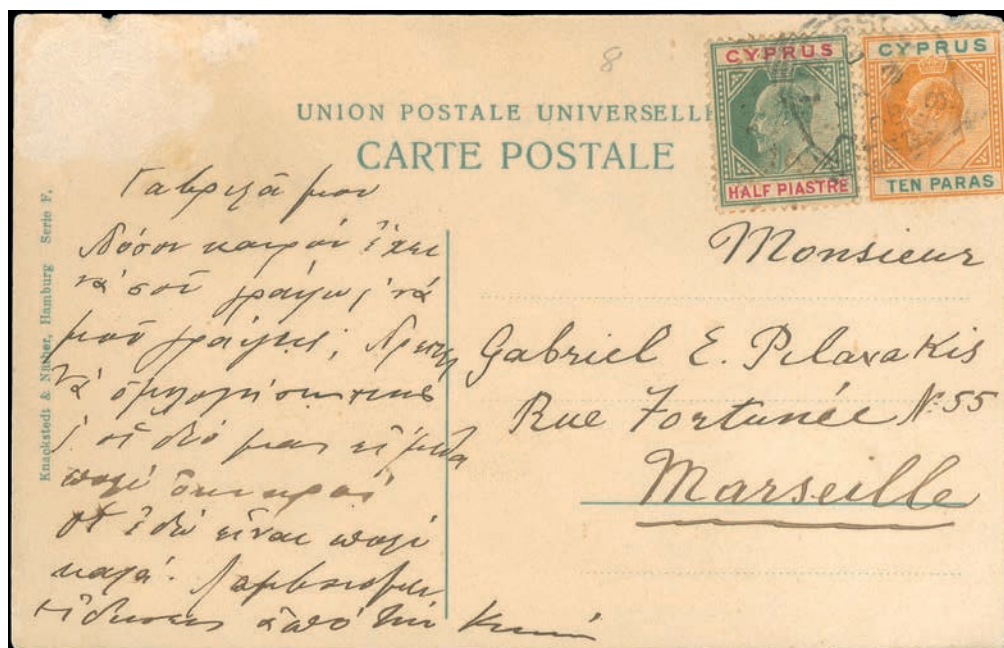 8
UNION POSTALE UNIVERSELLE
CARTE POSTALE
CYPRUS
HALF PIASTRE
CYPRUS
TEN PARAS
Knackstedt & Näther, Hamburg Serie F.
Γαβριλά μου
Πόσον καιρόν έχει
νά σού γράψω, νά
μού γράψεις; Πρέπει
νά
οι δυό μας είμεθα
πολύ οκνηροί
εδώ είναι πολύ
καλά.
ειδήσεις από την
Monsieur
Gabriel E. Pilavakis
Rue Fortunée № 55
Marseille